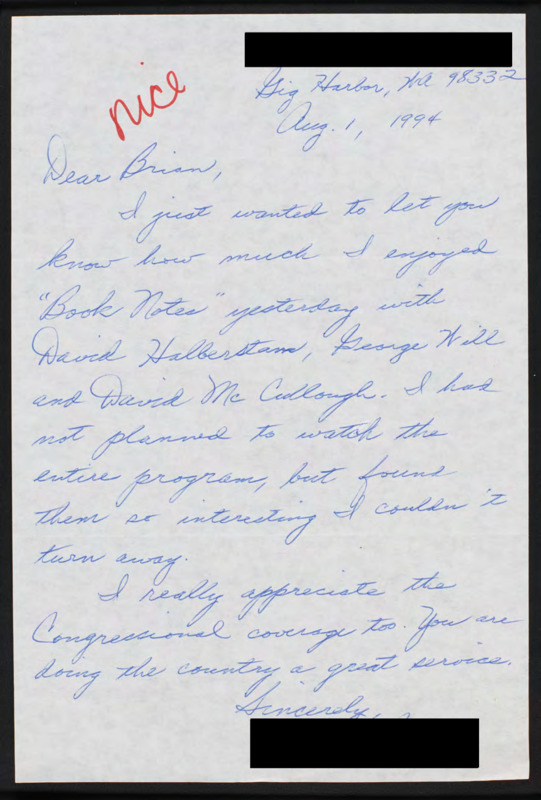 nice
Gig Harbor, WA 98332
Aug. 1, 1994
Dear Brian,
I just wanted to let you
know how much I enjoyed
"Book Notes" yesterday with
David Halberstam, George Will
and David McCullough. I had
not planned to watch the
entire program, but found
them so interesting I couldn't
turn away.
I really appreciate the
Congressional coverage too. You are
doing the country a great service.
Sincerely,